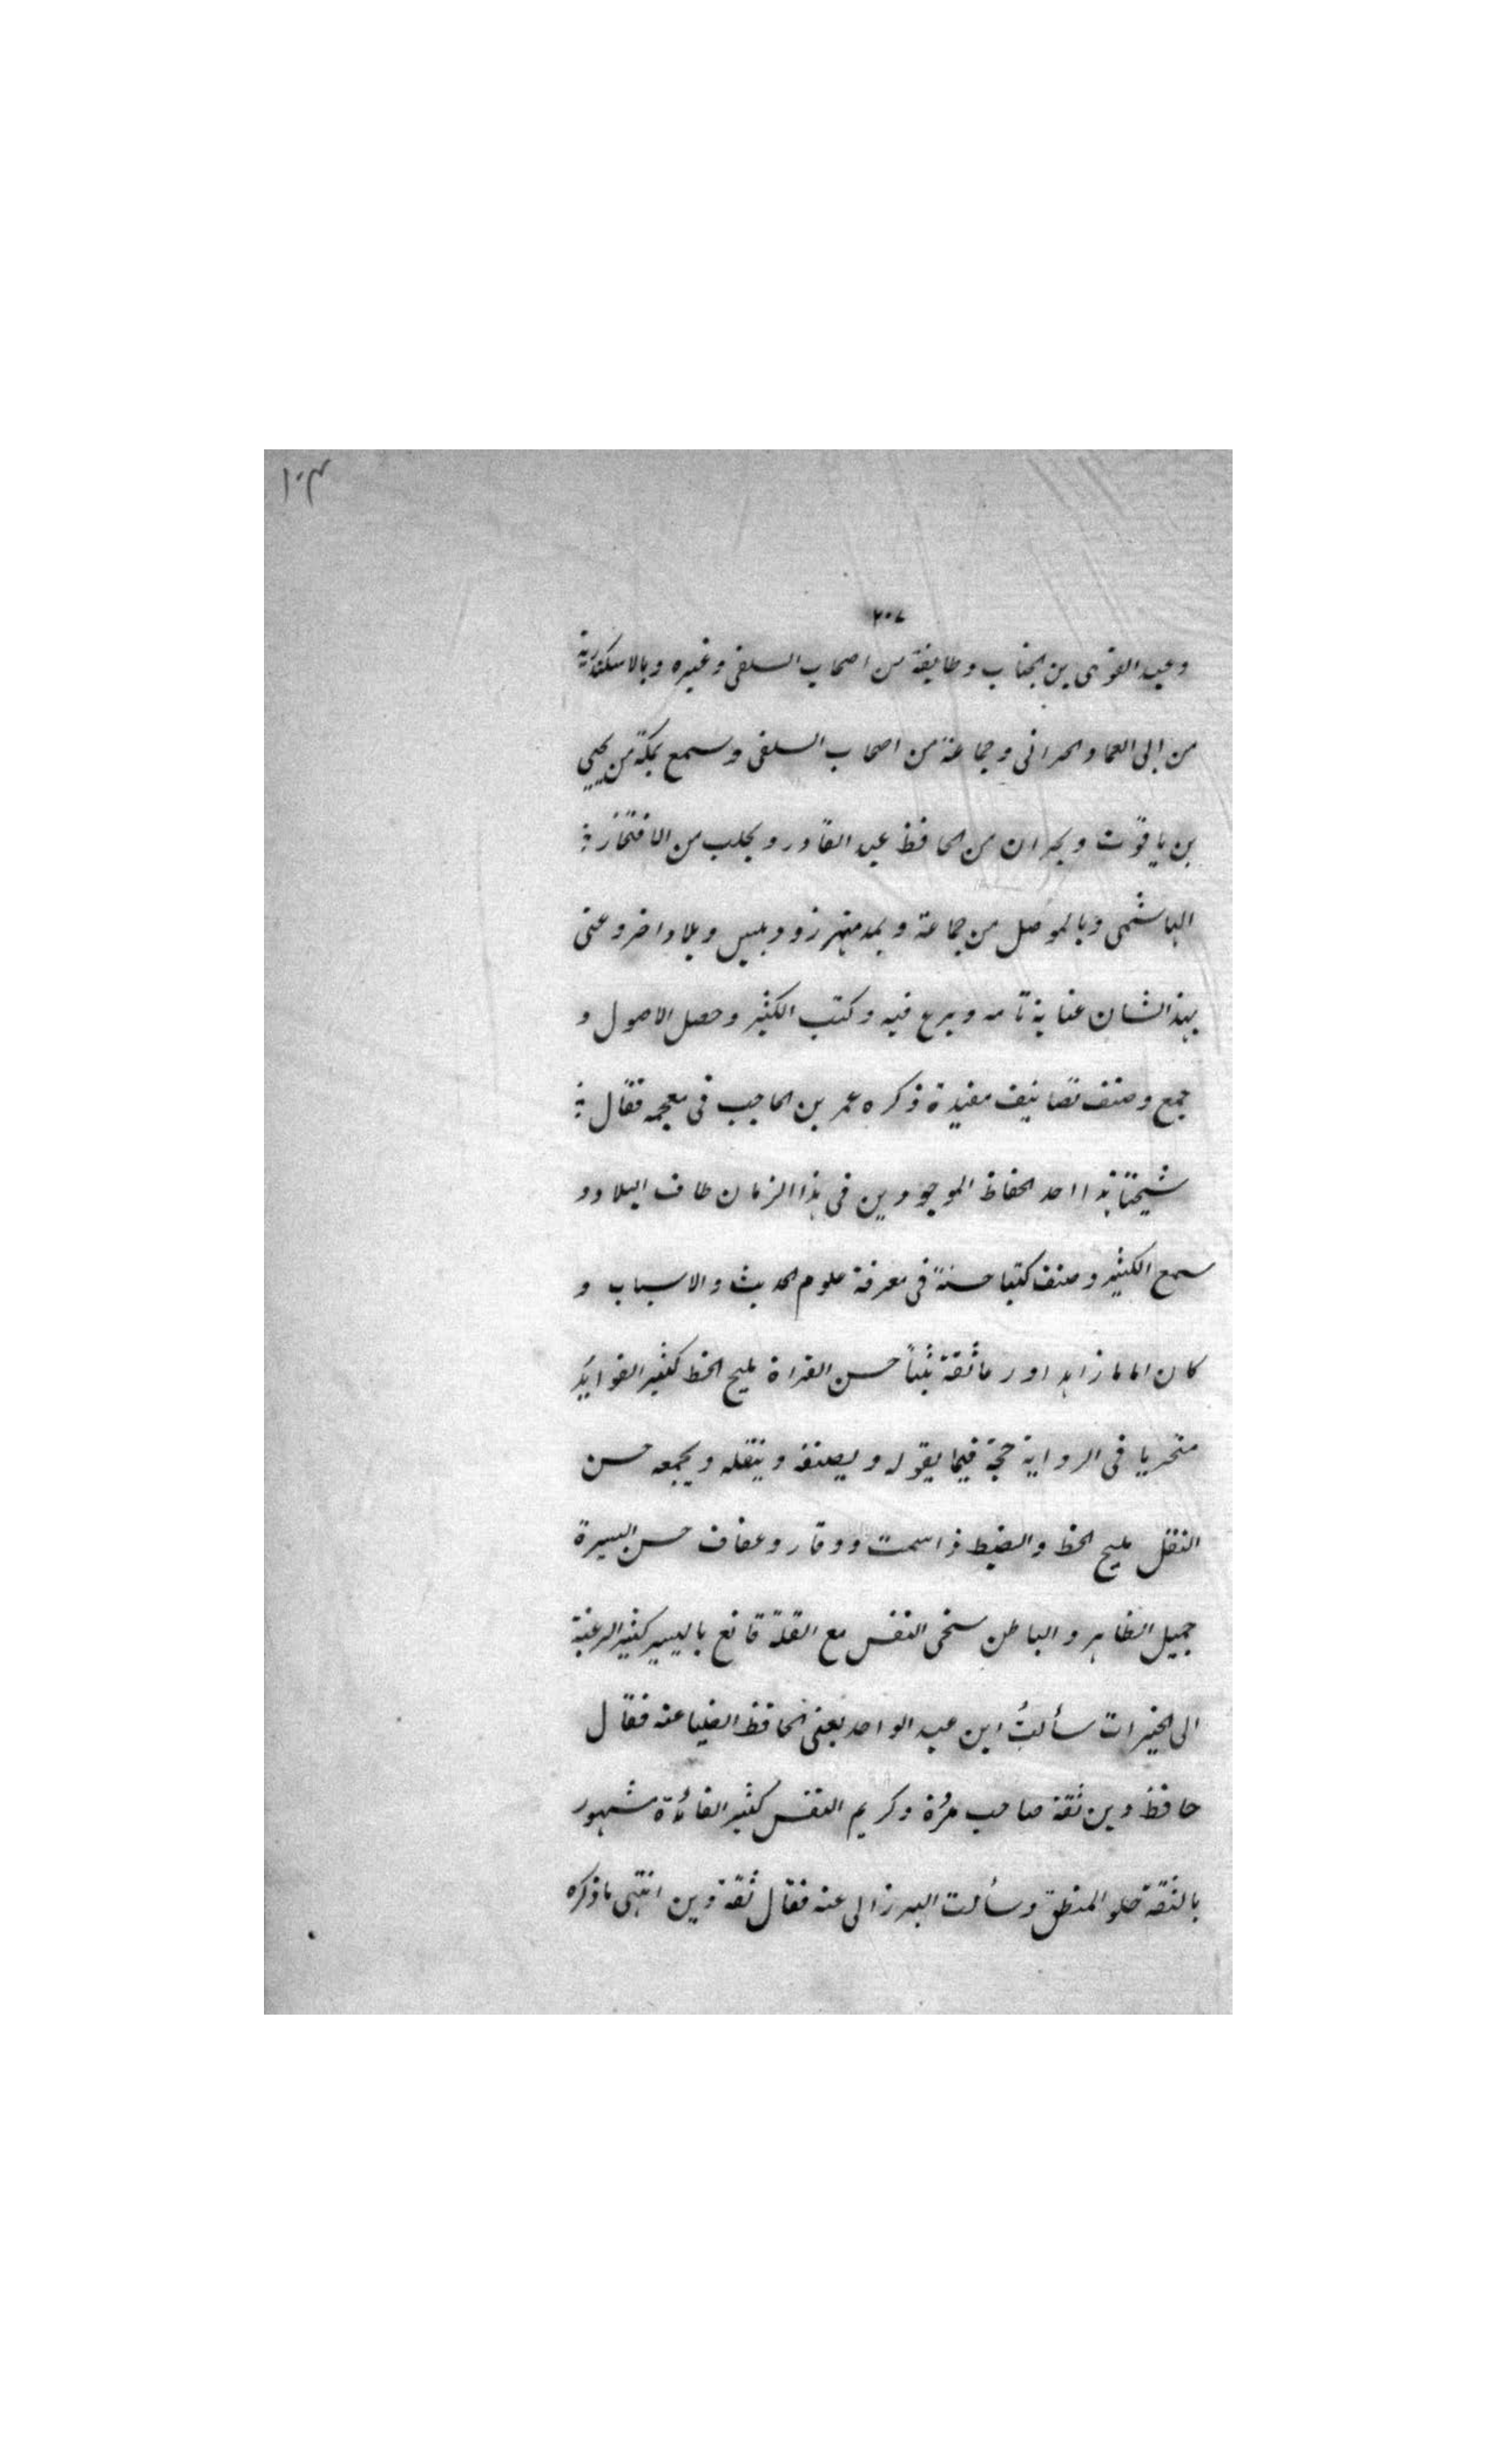 ١٠٣
٢٠٧
وعبد القوى بن الجباب وطايفة من اصحاب السلفى وغيره وبالاسكندرية
من ابى العماد الحرانى وجماعة من اصحاب السلفى وسمع بمكة من يحيى
بن ياقوت وبحران من الحافظ عبد القادر وبحلب من الافتخار
الهاشمى وبالموصل من جماعة وبدمنهر زود وبلبيس وبلاد اخر وعنى
بهذ الشان عناية تامه وبرع فيه وكتب الكثير وحصل الاصول و
جمع وصنف تصانيف مفيدة ذكره عمر بن الحاجب فى معجمه فقال
شيخنا هذا احد الحفاظ الموجودين فى هذا الزمان طاف البلاد و
سمع الكثير وصنف كتبا حسنةً فى معرفة علوم الحديث والاسباب و
كان اماما زاهدا ورعا ثقة ثبتاً حسن القراة مليح الخط كثير الفوايد
متحريا فى الرواية حجة فيما يقوله ويصنفه وينقله ويجمعه حسن
النقل مليح الخط والضبط ذا سمت ووقار وعفاف حسن السيرة
جميل الظاهر والباطن سخى النفس مع القلة قانع باليسير كثير الرغبة
الى الخيرات سألتُ ابن عبد الواحد يعنى الحافظ الضيا عنه فقال
حافظ دين ثقة صاحب مرُة وكريم النفس كثير الفائدة مشهور
بالثقة حلو المنطق وسألت البرزالى عنه فقال ثقة دين انتهى ما ذكره